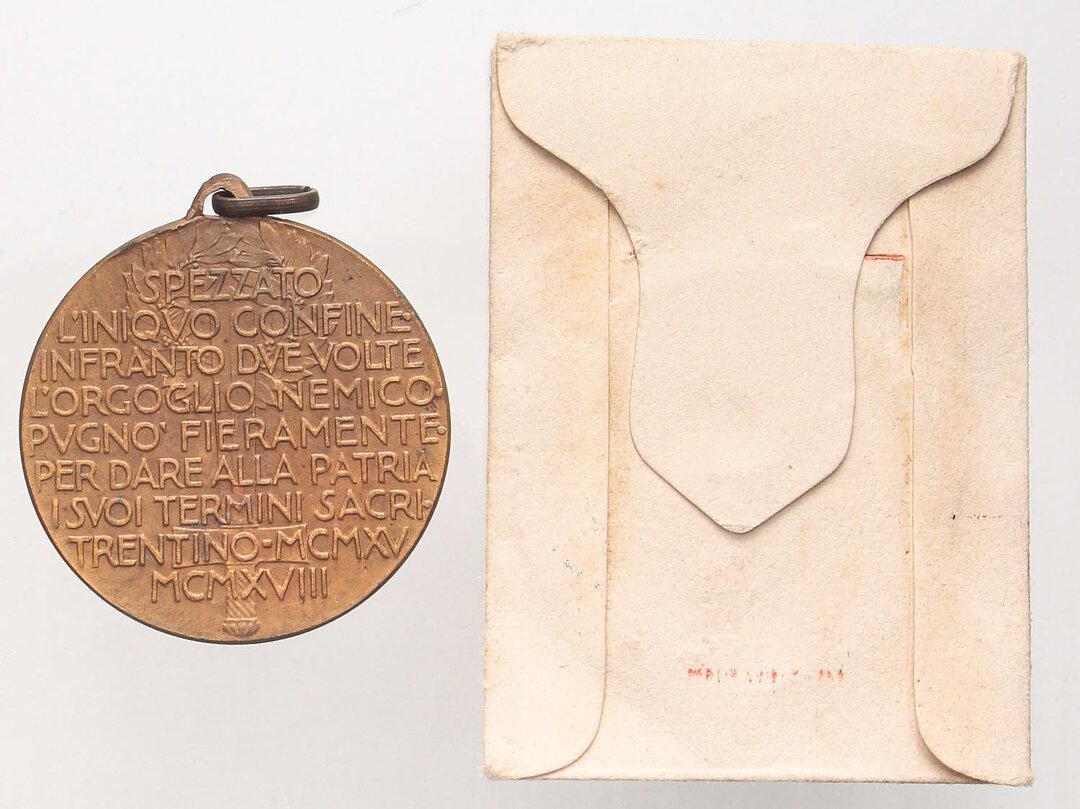 SPEZZATO
L'INIQVO CONFINE·
INFRANTO DVE VOLTE
L'ORGOGLIO NEMICO·
PVGNO' FIERAMENTE·
PER DARE ALLA PATRIA
I SVOI TERMINI SACRI·
TRENTINO-MCMXV
MCMXVIII